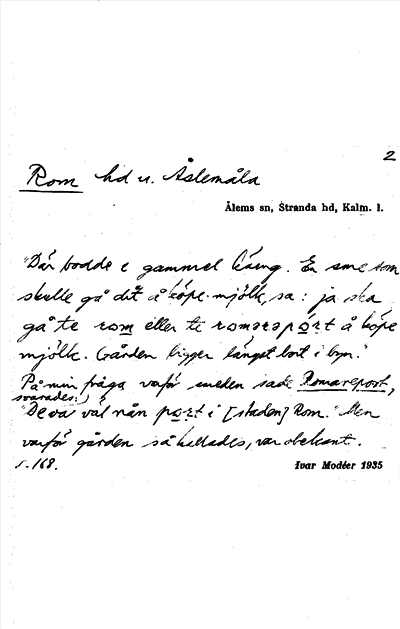 2
Rom hd u. Åslemåla
Ålems sn, Stranda hd, Kalm. l.
"Där bodde e gammel käring. En sme som
skulle gå dit å köpe mjölk, sa: ja ska
gå te rom eller te romarepórt å köpe
mjölk. Gården ligger längst bort i byn."
På min fråga varför smeden sade Romareport,
svarades:
"De va väl nån port i [staden] Rom." Men
varför gården så kallades, var obekant.
s. 168.
Ivar Modéer 1935